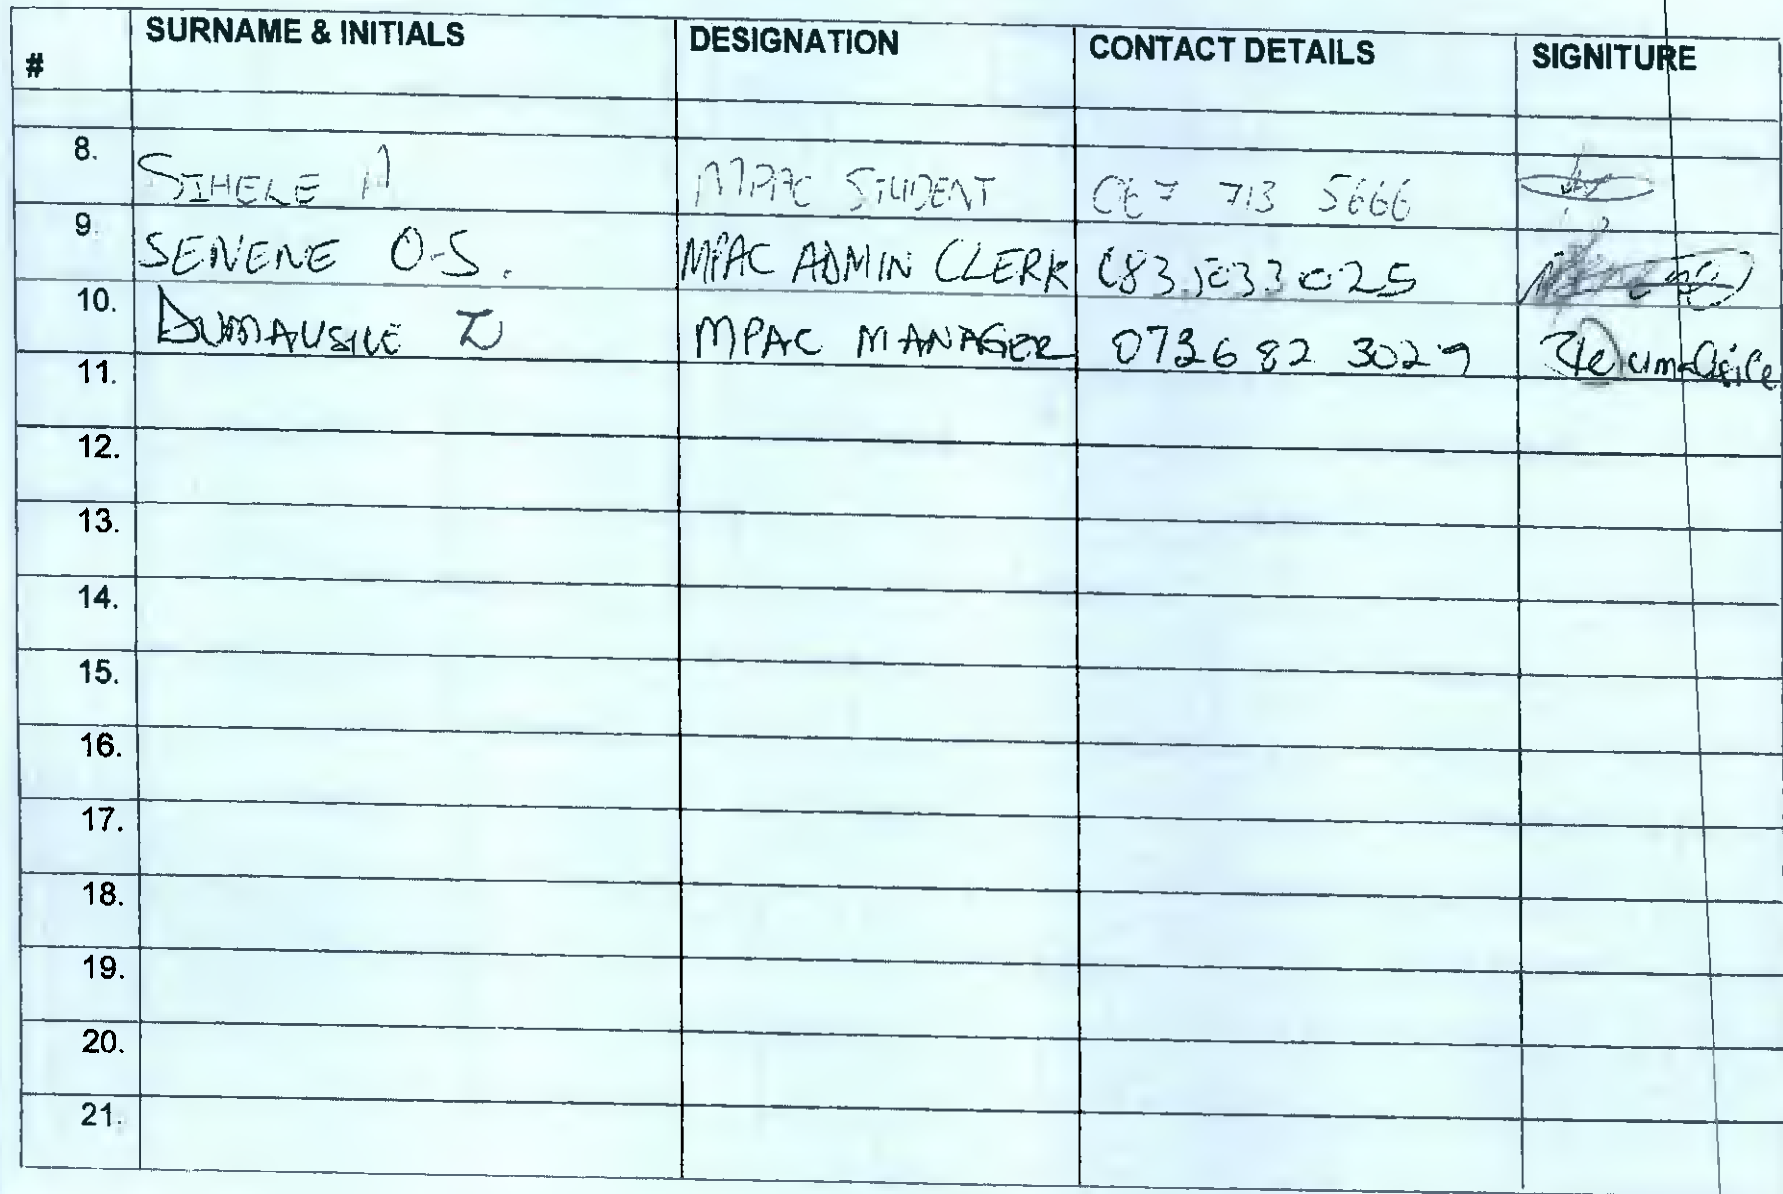 # SURNAME & INITIALS DESIGNATION CONTACT DETAILS SIGNITURE
8. SIHELE A MPAC STUDENT 067 713 5666
9. SENENE O-S. MPAC ADMIN CLERK 083 1033025
10. DUMALISILE Z MPAC MANAGER 073682 3029
11.
12.
13.
14.
15.
16.
17.
18.
19.
20.
21.